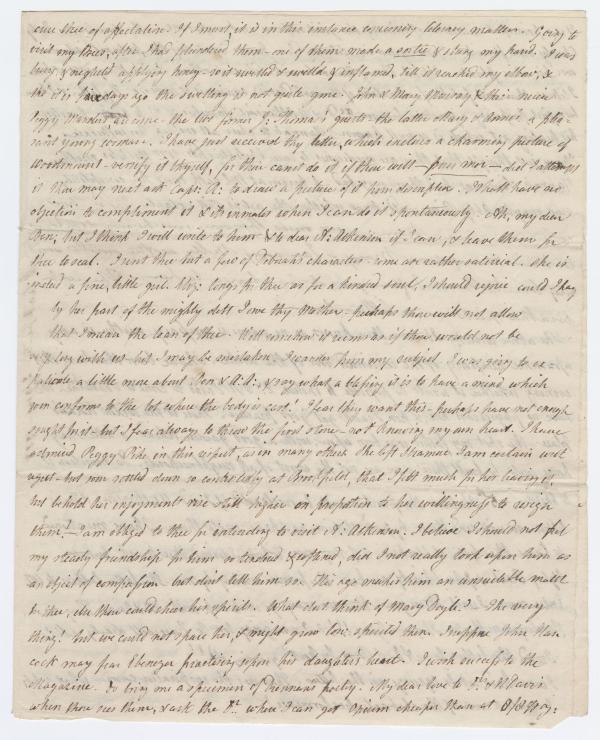 thee of affectation. If I must, it is in this instance concerning literary matters. Going to
visit my hives, after I had plundered them – one of them made a sortie & stung my hand. I was
busy, & neglected applying honey – so it swelled & swelled & inflamed, till it reached my elbow, &
tho' it is days ago the swelling is not quite gone. John & Mary & their niece
Peggy are come – the two former guests – the latter Mary & a plea-
sant young woman. I have just received thy letter, which incloses a charming picture of
Woodmount – versify it thyself, for thou canst do it if thou will – – did I attempt
it thou may next ask Capt: A: to draw a picture of it from description. I shall have no
objection to compliment it & its inmates when I can do it spontaneously. Ah, my dear
Ben; but I think I will write to him & to dear A: Atkinson if I can, & leave them for
thee to seal. I sent thee but a few of Deborah's characters – some are rather satirical. She is
indeed a fine little girl. longs for thee as for a kindred soul, I should rejoice could I pay
by her part of the mighty debt I owe thy Mother – perhaps thou wilt not allow
that I mean the loan of thee. Well somehow it seems as if thou would not be
very long with us – but I may be mistaken. I wander from my subject. I was going to ex-
patiate a little more about Ben & A: A:, & say what a blessing it is to have a mind which
soon conforms to the lot where the body is cast! I fear they want this – perhaps have not enough
sought for it – but I fear always to throw the first stone – not knowing my own heart. I have
admired Peggy in this respect, as in many others she left I am certain with
regret – but soon settled down so contentedly at that I felt much for her leaving it,
but behold her enjoyments rise still higher in proportion to her willingness to resign
them! – I am obliged to thee for intending to visit A: Atkinson. I believe I should not feel
my steady friendship for him so tender & , did I not really look upon him as
an object of compassion – but don't tell him so. This age makes him an unsuitable match
for thee, else thou could cheer his spirits. What dost think of Mary Doyle? – The very
thing! but we could not spare her, & might grow low-spirited then. I suppose John Han
cock may fear Ebenezer practising upon his daughter's heart. I wish success to the
Magazine. Do bring me a specimen of Drennan's poetry. My dear love to Dr. & W Davis
when thou sees them, & ask the Dr. where I can get Opium cheaper than at